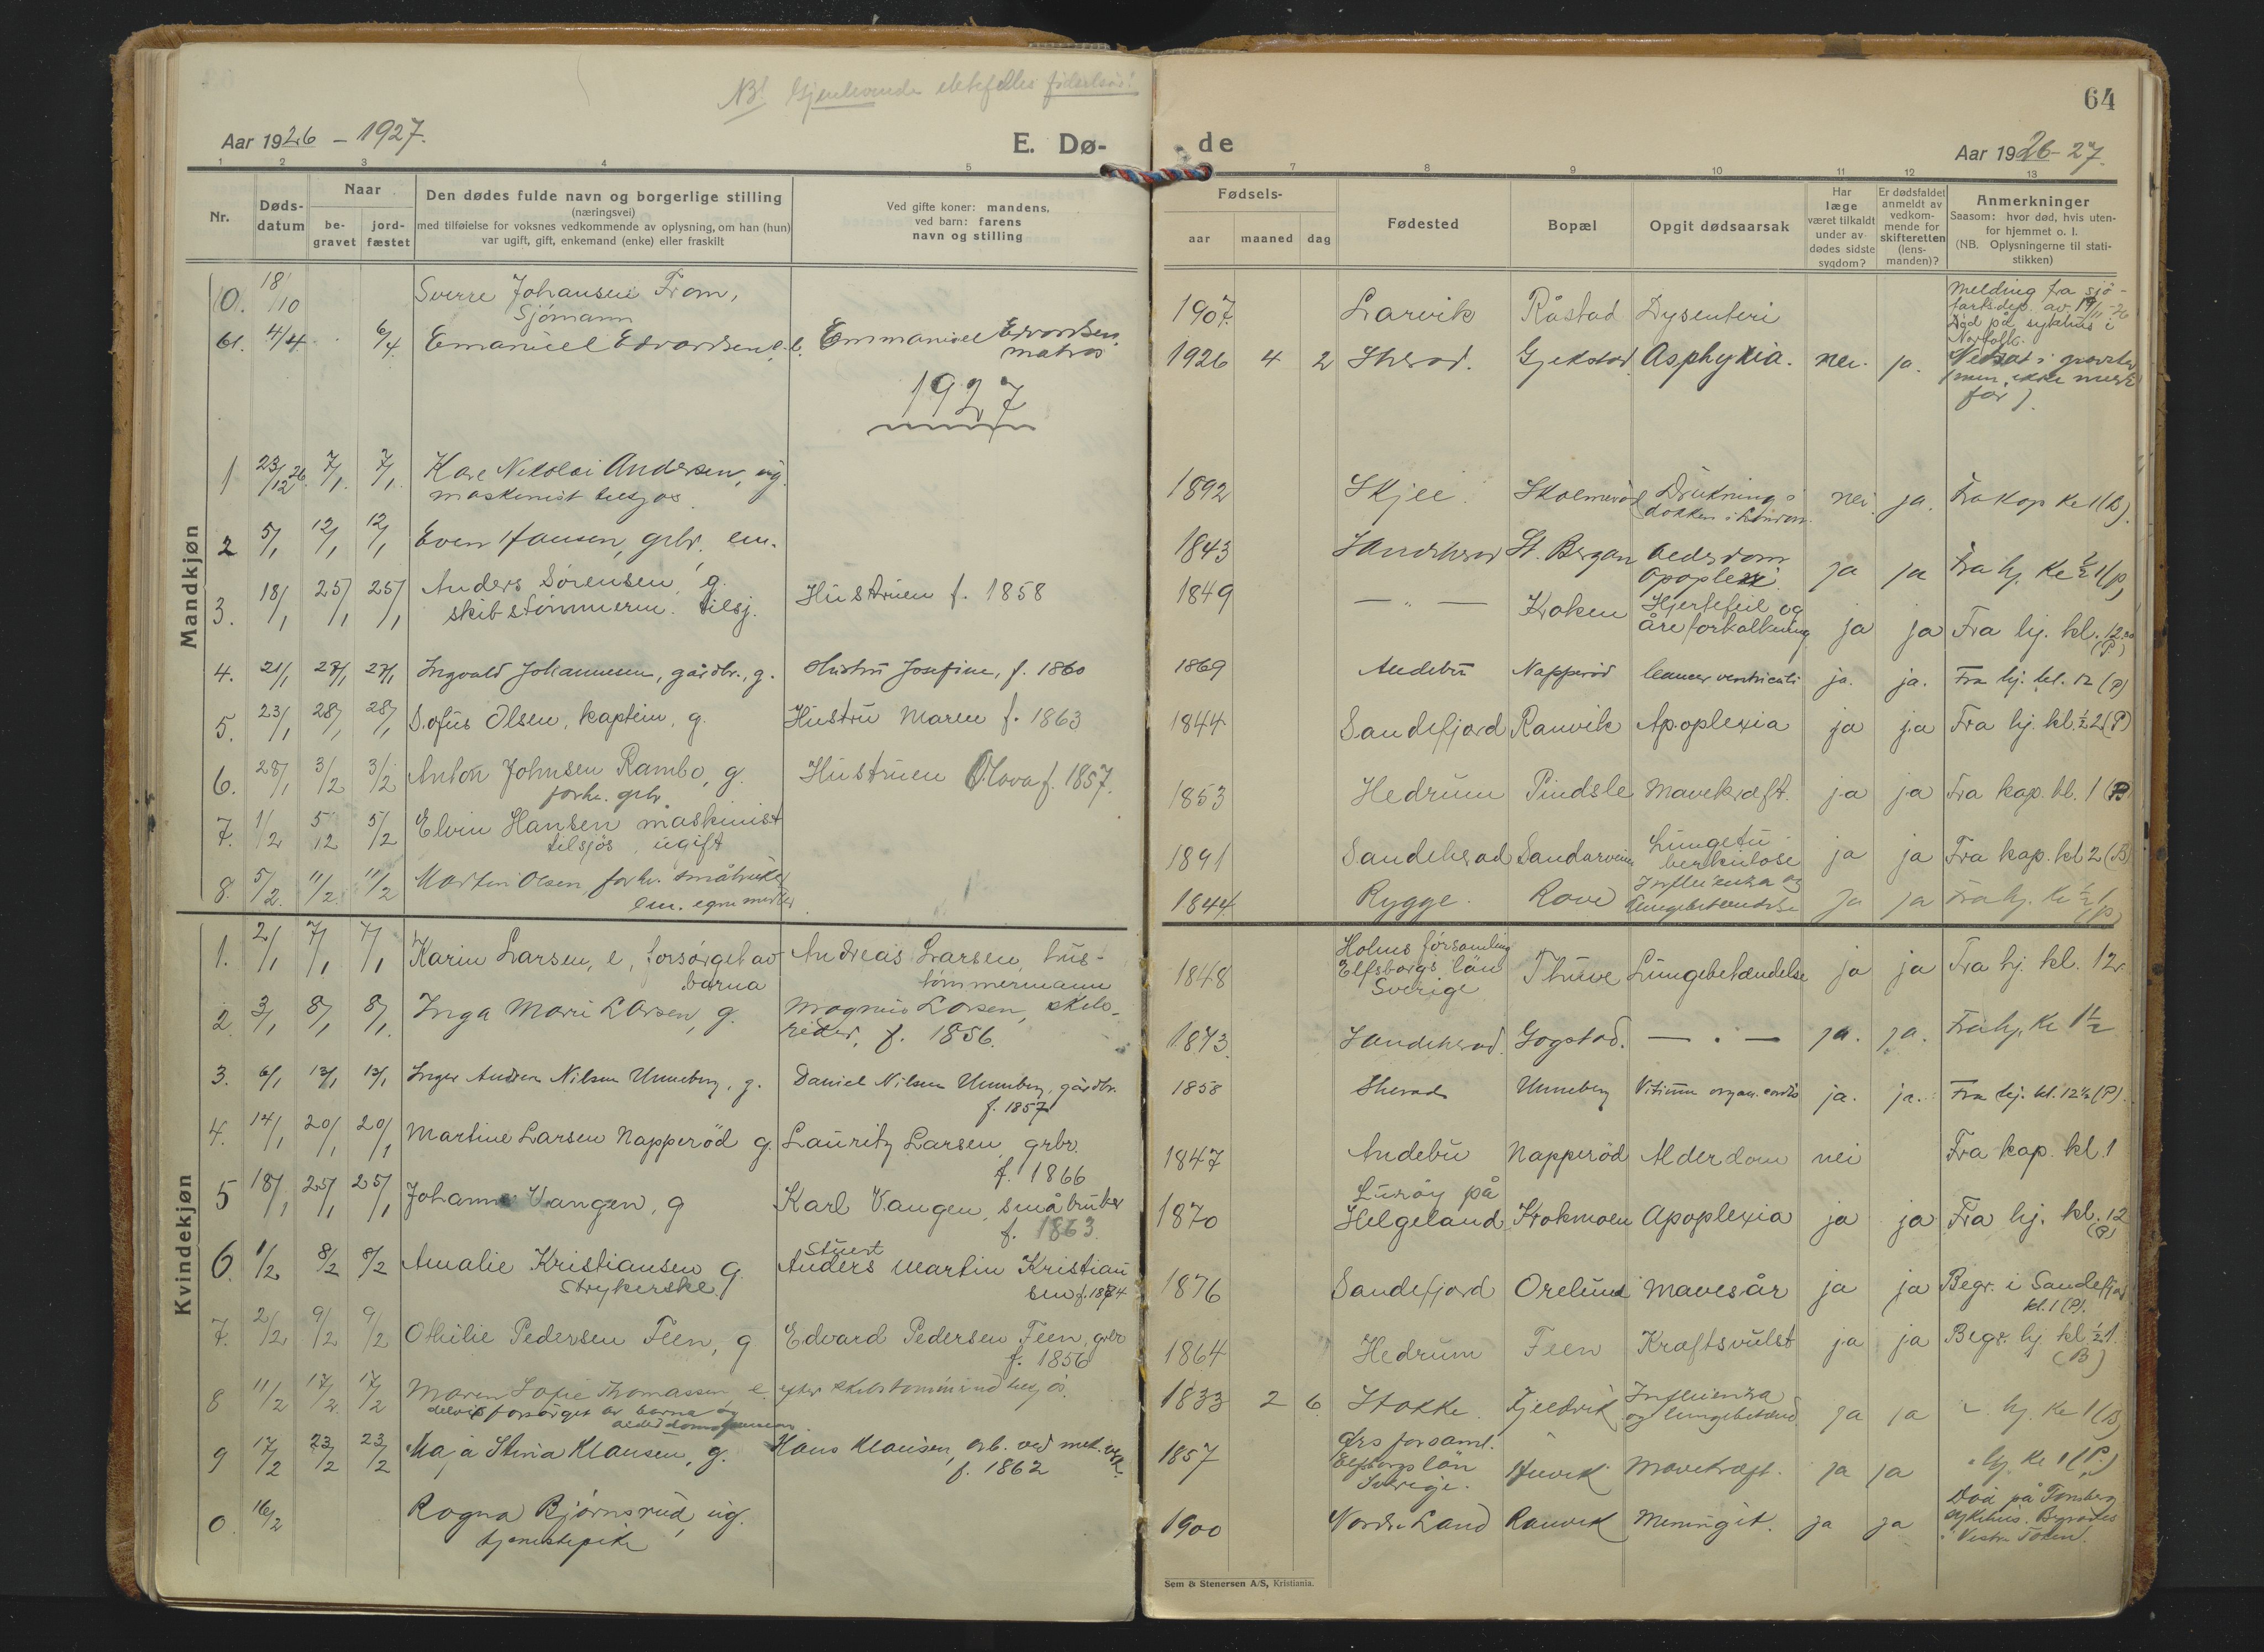 NB! Gjenlevende ektefelles födselsår!
64
Aar 1926 - 1927.
E. Dø-
de
Aar 1926-27.
1 2 3 4 5 7 8 9 10 11 12 13
Nr.
Døds-
datum
Naar
be-
gravet
jord-
fæstet
Den dødes fulde navn og borgerlige stilling
(næringsvei)
med tilføielse for voksnes vedkommende av oplysning, om han (hun)
var ugift, gift, enkemand (enke) eller fraskilt
Ved gifte koner: mandens,
ved barn: farens
navn og stilling
Fødsels-
aar maaned dag
Fødested
Bopæl
Opgit dødsaarsak
Har
læge
været tilkaldt
under av-
dødes sidste
sygdom?
Er dødsfaldet
anmeldt av
vedkom-
mende for
skifteretten
(lens-
manden)?
Anmerkninger
Saasom: hvor død, hvis uten-
for hjemmet o. l.
(NB. Oplysningerne til stati-
stikken)
Mandkjøn
0. 18/10 Sverre Johansen Fram,
Sjömann
1907. Larvik Råstad Dysenteri
Melding fra sjö-
fartsdep. av 19/11-26
Död på sykehus i
Norfolk.
61. 4/4 6/4 Emanuel Edvardsen, Emmanuel Edvardsen,
matros
1926 4 2 Sherad. Gjekstad Asphyxia. nei. ja.
1927
1 23/12 26. 7/1. 7/1. Kare Nikolai Andersen, ug.
maskinist tilsjøs
1892 Skjee. Drukning i
dokken i London. nei. ja. Fra kap kl 1 (B).
2 5/1 12/1 12/1 Even Hansen, grbr. em.
1843 Sandeherad St. Bergan Alderdom
Apoplexi ja ja Fra hj. kl ½1 (P)
3. 18/1 25/1 25/1 Anders Sørensen, g.
skibstömmerm. tilsj.
Hustruen f. 1858
1849 — " — Kroken Hjertefeil og
åreforkalkning ja ja Fra hj. kl. 12.00
(P)
4. 21/1 27/1 27/1 Ingvald Johannesen, gårdbr., g. Hustru Josefine, f. 1860
1869 Andebu Napperöd Cancer ventriculi ja. ja. Fra hj. kl. 12 (P)
5. 23/1 28/1 28/1 Sofus Olsen, kaptein, g. Hustru Maren f. 1863
1844 Sandefjord Ranvik Apoplexia ja ja Fra hj. kl. ½2 (P)
6. 28/1 3/2 3/2 Anton Johnsen Rambo, g.
forhv. grbr.
Hustruen Olava f. 1857.
1853 Hedrum Pindsle Mavekræft. ja ja Fra kap. kl. 1 (P)
7. 1/2 5/12 5/2 Elvin Hansen maskinist
tilsjøs, ugift
1891 Sandeherad Lungetu-
berkulose ja ja Fra kap. kl 2 (B)
8. 5/2. 11/2. 11/2 Martin Olsen, forhv. småbruker
em. egne midler.
1844 Rygge. Rove Influenza og
lungebetændelse ja ja Fra hj. kl ½1
(P)
Kvindekjøn
1. 2/1 7/1 7/1 Karin Larsen, e, forsørget av
barna
Andreas Larsen, hus-
tömmermann
1848 Holms församling
Elfsborgs län
Sverige
Thuve Lungebetændelse ja ja Fra hj. kl. 12.
2. 3/1 8/1 8/1. Inga Marie Larsen, g. Magnus Larsen, skibs-
reder, f. 1856.
1873. Sandeherad. Gogstad. — " — ja. ja. Fra hj. kl 1½
3. 6/1 13/1 13/1 Inger Andrea Nilsen Unneberg, g. Daniel Nilsen Unneberg, gårdbr.
f. 1857
1858 Sherad Unneberg Vitium organ. cordis ja. ja. Fra hj. kl. 12½ (P).
4. 14/1 20/1 20/1 Martine Larsen Napperöd g. Lauritz Larsen, grbr.
f. 1866
1847 Andebu Napperöd Alderdom nei Fra kap. kl. 1
5 18/1 25/1 25/1 Johanne Vangen, g Karl Vangen, småbruker
f. 1863.
1870 Luröy på
Helgeland Krokmoen Apoplexia ja ja Fra hj. kl. 12
(P)
6. 1/2 8/2 8/2 Amalie Kristiansen g.
strykerske.
Stuert
Anders Martin Kristian-
sen f. 1874
1876 Sandefjord Orelund Mavesår ja ja Begr. i Sandefjord
kl. 1 (P).
7. 2/2 9/2 9/2 Othilie Pedersen Feen, g Edvard Pedersen Feen, grbr
f. 1856
1864 Hedrum Feen Kræftsvulst ja ja Begr. hj kl ½1.
(B)
8 11/2 17/2. 17/2 Maren Sofie Thomassen e. efter skibstömmermand tilsjös.
delvis forsørget av barna og
alderdomspension
1833 2 6. Stokke. Fjeldvik Influenza
og lungebetænd. ja ja hj. kl 1 (B)
9 17/2 23/2 23/2 Maja Stina Klausen, g. Hans Klausen, arb. ved mek. verk.
f. 1862
1857 Örs forsaml.
Elfsborgs län
Sverige.
Mavekræft. ja ja hj. kl 1 (P.)
0. 16/2 Ragna Bjørnsrud, ug.
tjenestepike
1900 Nordre Land Ranvik Meningit. ja ja
Död på Tønsberg
sykehus. Begraves
i Vestre Toten.
Sem & Stenersen A/S, Kristiania.